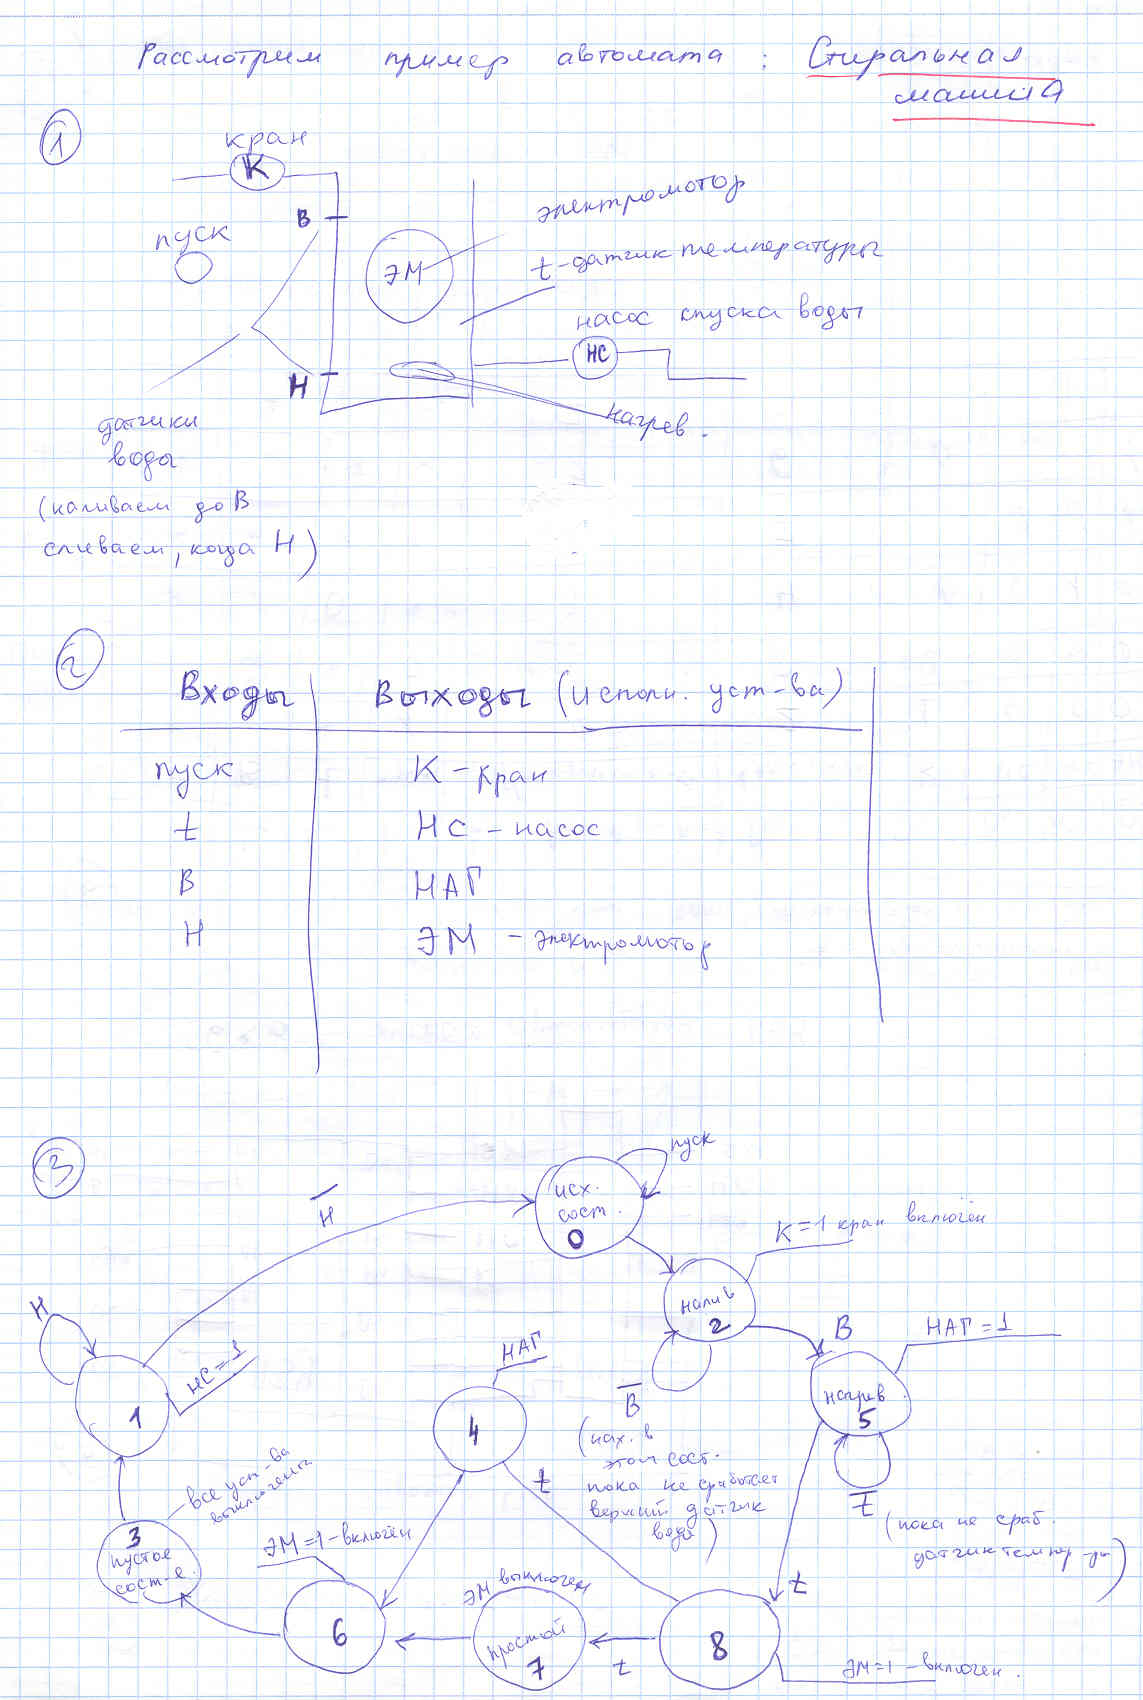 Рассмотрим пример автомата : Стиральная
машина
1
кран
К
В
пуск
ЭМ
электромотор
t - датчик температуры
насос спуска воды
НС
Н
нагрев.
датчики
воды
(наливаем до В
сливаем, когда Н)
2
Входы Выходы (исполн. уст-ва)
пуск К - кран
t НС - насос
В НАГ
Н ЭМ - электромотор
3
пуск
исх.
сост.
0
H̅
К=1 кран включён
налив
2
В
НАГ=1
нагрев
5
Н
НС=1
1
НАГ
4
B̅
(нах. в
этом сост.
пока не сработает
верхний датчик
воды)
t
t̅
(пока не сраб.
датчик темпер-ры)
все уст-ва
выключены
3
пустое
сост-е.
ЭМ=1 - включён
6
ЭМ выключен
простой
7
t
8
t
ЭМ=1 - включен.